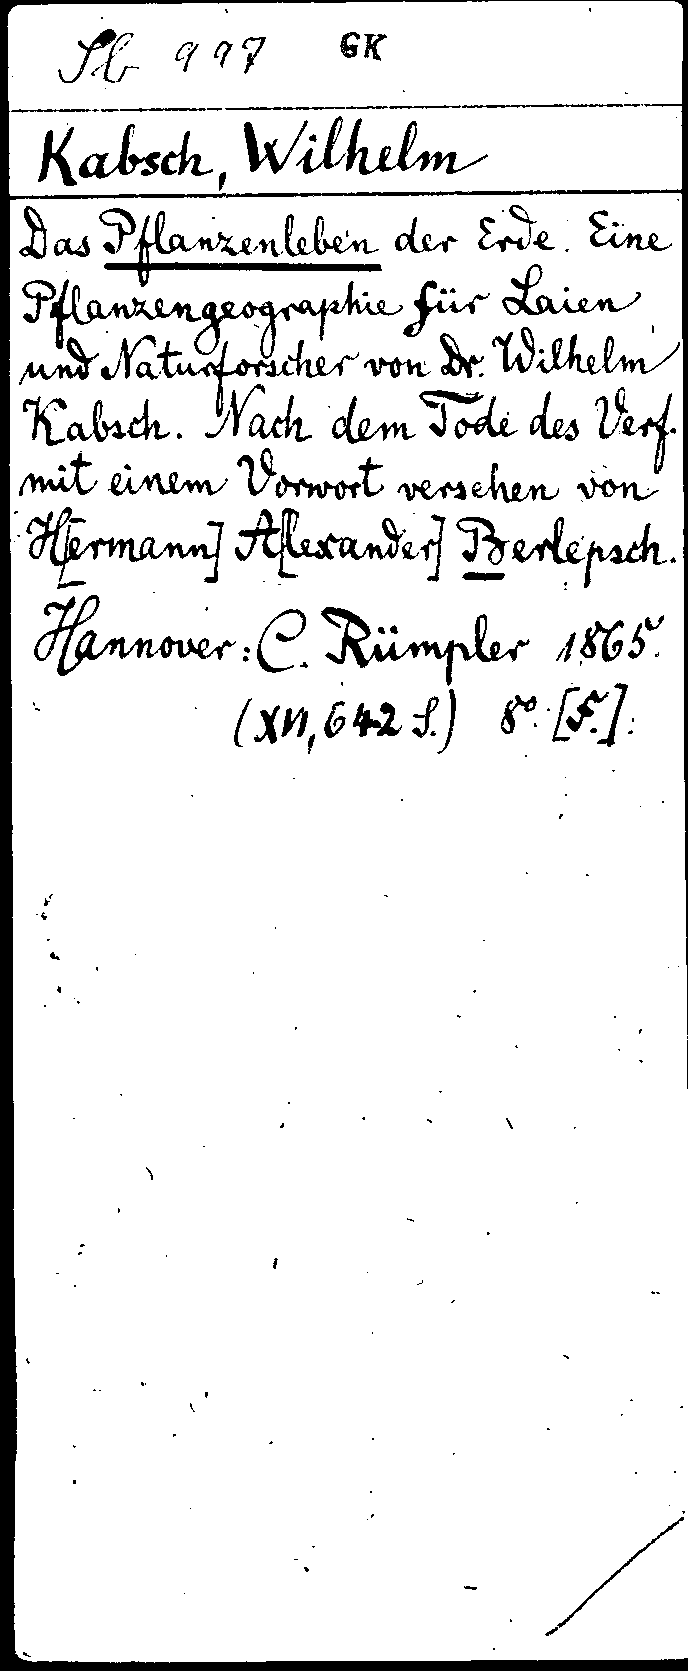 Sb 997 GK
Kabsch, Wilhelm
Das Pflanzenleben der Erde. Eine
Pflanzengeographie für Laien
und Naturforscher von Dr. Wilhelm
Kabsch. Nach dem Tode des Verf.
mit einem Vorwort versehen von
H[ermann] A[lexander] Berlepsch.
Hannover: C. Rümpler 1865.
(XII, 642 S.) 8°. [F.].